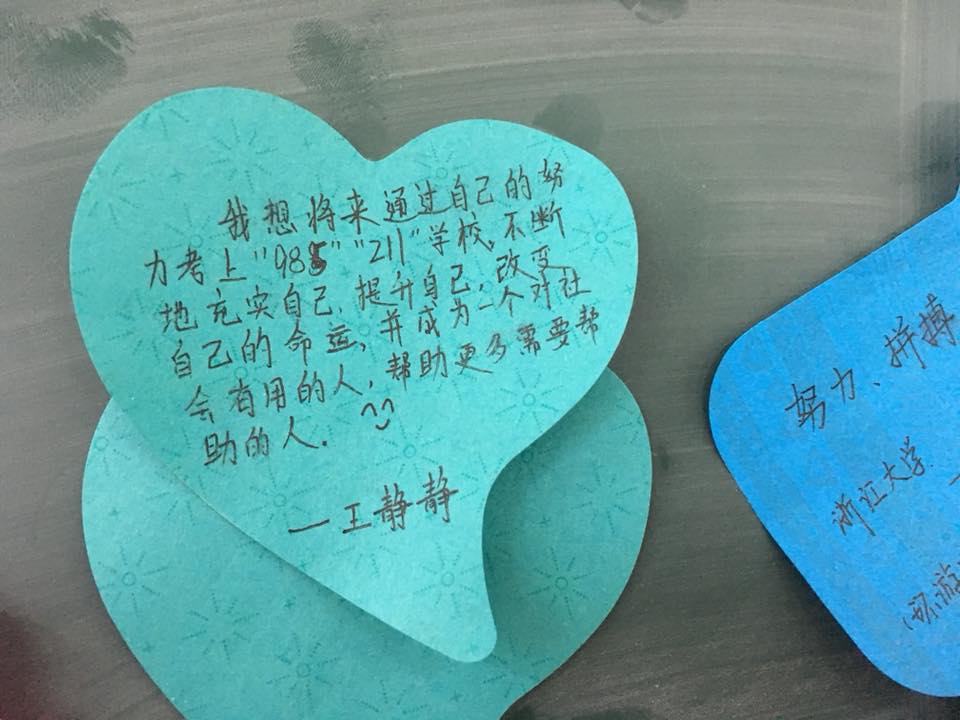 我想将来通过自己的努
力考上"985""211"学校,不断
地充实自己,提升自己,改变
自己的命运,并成为一个对社
会有用的人,帮助更多需要帮
助的人. ^^
—王静静
努力、拼搏
浙江大学